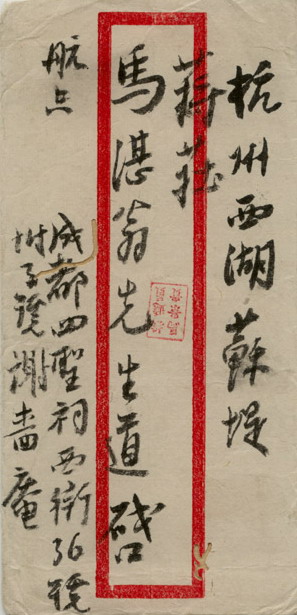 杭州西湖蘇堤
蔣莊
馬湛翁先生道啓
航空
成都四聖祠西街36號
附3號謝嗇庵